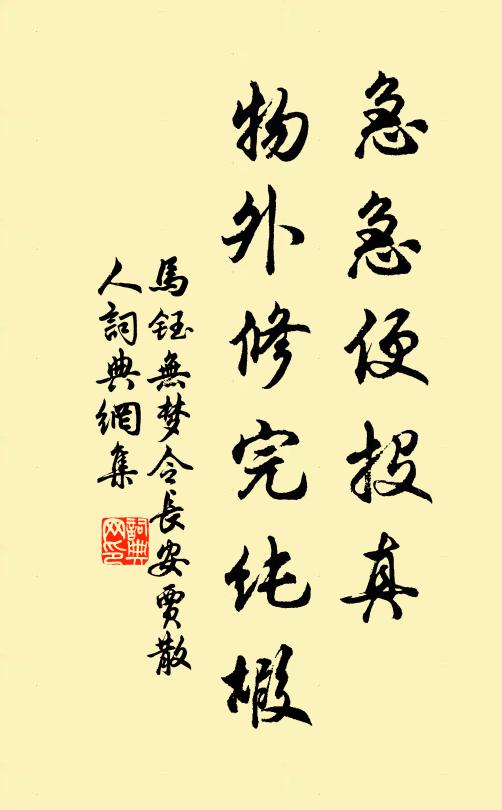 急急便投真
物外修完純嘏
馬鈺無梦令長安賈散
人詞典網集
詞典
网印